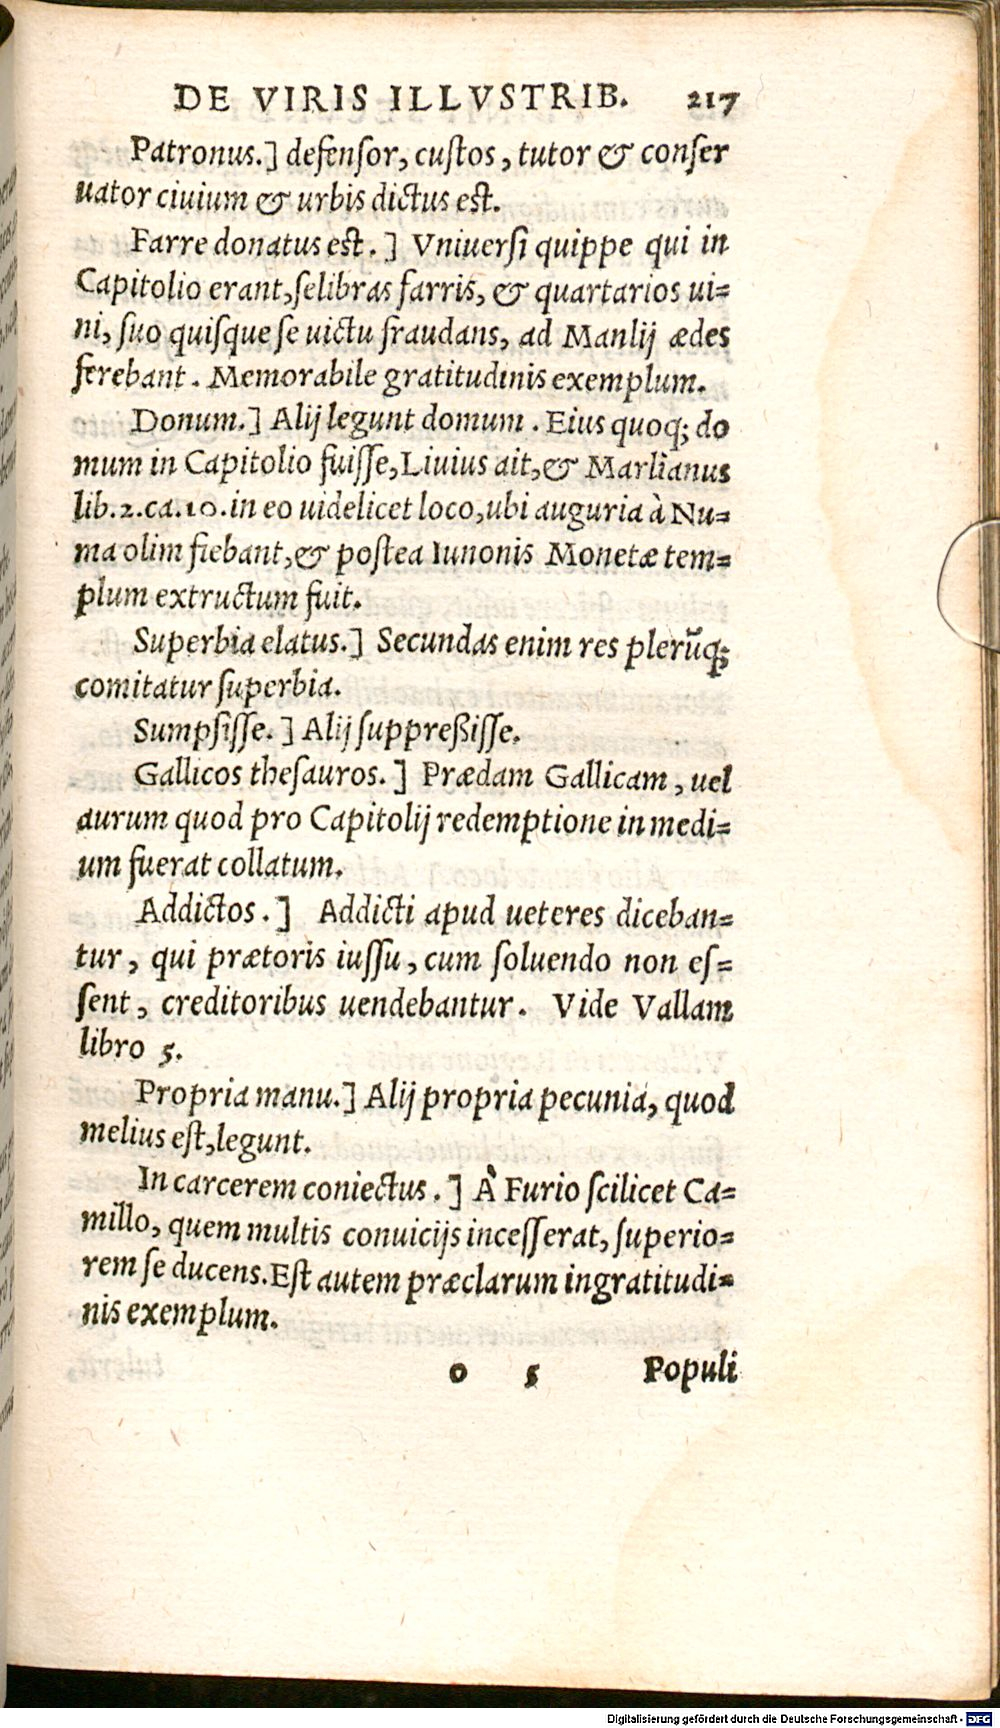 DE VIRIS ILLVSTRIB. 217
Patronus.] defensor, custos, tutor & conser
uator ciuium & urbis dictus est.
Farre donatus est.] Vniuersi quippe qui in
Capitolio erant, selibras farris, & quartarios ui=
ni, suo quisque se uictu fraudans, ad Manlij ædes
ferebant. Memorabile gratitudinis exemplum.
Donum.] Alij legunt domum. Eius quoq; do
mum in Capitolio fuisse, Liuius ait, & Marlianus
lib. 2. ca. 10. in eo uidelicet loco, ubi auguria à Nu=
ma olim fiebant, & postea Iunonis Monetæ tem=
plum extructum fuit.
Superbia elatus.] Secundas enim res plerũq;
comitatur superbia.
Sumpsisse.] Alij suppreßisse.
Gallicos thesauros.] Prædam Gallicam, uel
aurum quod pro Capitolij redemptione in medi=
um fuerat collatum.
Addictos.] Addicti apud ueteres diceban=
tur, qui prætoris iussu, cum soluendo non es=
sent, creditoribus uendebantur. Vide Vallam
libro 5.
Propria manu.] Alij propria pecunia, quod
melius est, legunt.
In carcerem coniectus.] À Furio scilicet Ca=
millo, quem multis conuicijs incesserat, superio=
rem se ducens. Est autem præclarum ingratitudi=
nis exemplum.
o 5 Populi
Digitalisierung gefördert durch die Deutsche Forschungsgemeinschaft - DFG